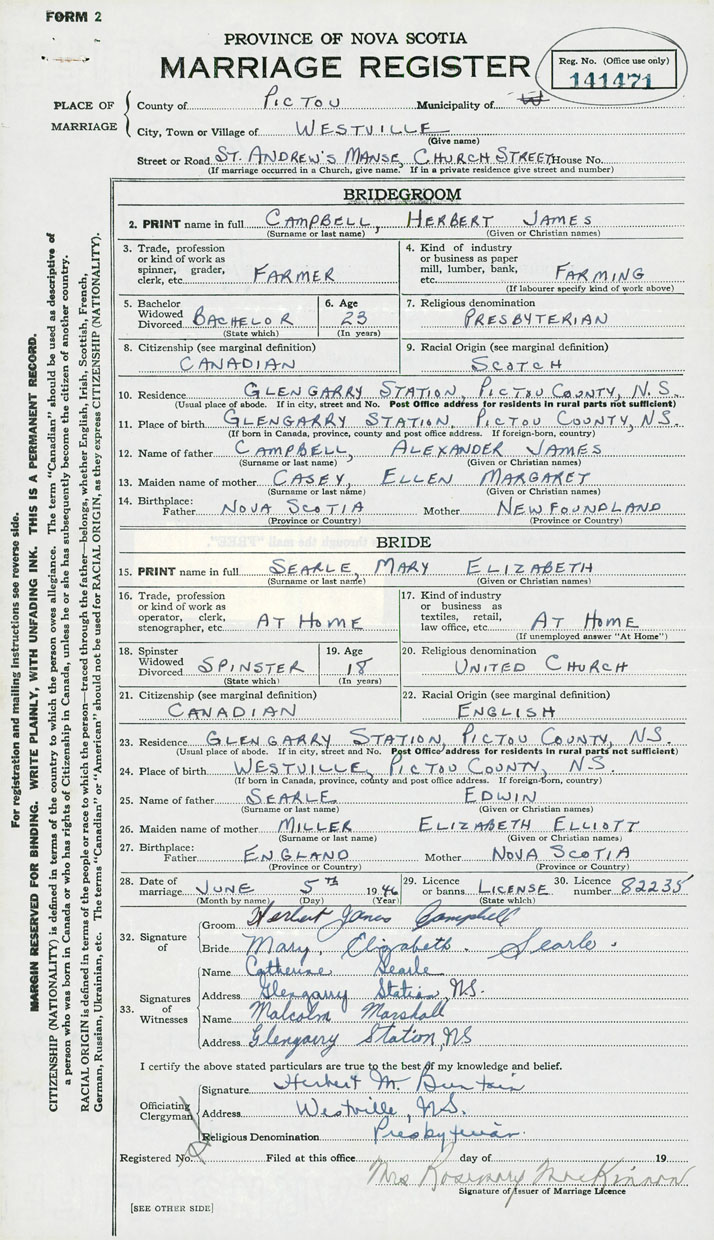 FORM 2
PROVINCE OF NOVA SCOTIA
MARRIAGE REGISTER
Reg. No. (Office use only)
141471
PLACE OF MARRIAGE
County of PICTOU Municipality of
City, Town or Village of WESTVILLE
(Give name)
Street or Road ST. ANDREW'S MANSE, CHURCH STREET House No.
(If marriage occurred in a Church, give name. If in a private residence give street and number)
BRIDEGROOM
2. PRINT name in full CAMPBELL, HERBERT JAMES
(Surname or last name) (Given or Christian names)
3. Trade, profession or kind of work as spinner, grader, clerk, etc. FARMER
4. Kind of industry or business as paper mill, lumber, bank, etc. FARMING
(If labourer specify kind of work above)
5. Bachelor Widowed Divorced BACHELOR
(State which)
6. Age 23
(In years)
7. Religious denomination
PRESBYTERIAN
8. Citizenship (see marginal definition)
CANADIAN
9. Racial Origin (see marginal definition)
SCOTCH
10. Residence GLENGARRY STATION, PICTOU COUNTY, N.S.
(Usual place of abode. If in city, street and No. Post Office address for residents in rural parts not sufficient)
11. Place of birth GLENGARRY STATION, PICTOU COUNTY, N.S.
(If born in Canada, province, county and post office address. If foreign-born, country)
12. Name of father CAMPBELL, ALEXANDER JAMES
(Surname or last name) (Given or Christian names)
13. Maiden name of mother CASEY, ELLEN MARGARET
(Surname or last name) (Given or Christian names)
14. Birthplace:
Father NOVA SCOTIA Mother NEWFOUNDLAND
(Province or Country) (Province or Country)
BRIDE
15. PRINT name in full SEARLE, MARY ELIZABETH
(Surname or last name) (Given or Christian names)
16. Trade, profession or kind of work as operator, clerk, stenographer, etc. AT HOME
17. Kind of industry or business as textiles, retail, law office, etc. AT HOME
(If unemployed answer "At Home")
18. Spinster Widowed Divorced SPINSTER
(State which)
19. Age 18
(In years)
20. Religious denomination
UNITED CHURCH
21. Citizenship (see marginal definition)
CANADIAN
22. Racial Origin (see marginal definition)
ENGLISH
23. Residence GLENGARRY STATION, PICTOU COUNTY, N.S.
(Usual place of abode. If in city, street and No. Post Office address for residents in rural parts not sufficient)
24. Place of birth WESTVILLE, PICTOU COUNTY, N.S.
(If born in Canada, province, county and post office address. If foreign-born, country)
25. Name of father SEARLE EDWIN
(Surname or last name) (Given or Christian names)
26. Maiden name of mother MILLER ELIZABETH ELLIOTT
(Surname or last name) (Given or Christian names)
27. Birthplace:
Father ENGLAND Mother NOVA SCOTIA
(Province or Country) (Province or Country)
28. Date of marriage JUNE 5TH 1946
(Month by name) (Day) (Year)
29. Licence or banns LICENSE
(State which)
30. Licence number 82235
32. Signature of
Groom Herbert James Campbell
Bride Mary Elizabeth Searle
33. Signatures of Witnesses
Name Catherine Searle
Address Glengarry Station, N.S.
Name Malcolm Marshall
Address Glengarry Station, NS
I certify the above stated particulars are true to the best of my knowledge and belief.
Officiating Clergyman
Signature Herbert M. Buntain
Address Westville, N.S.
Religious Denomination Presbyterian
Registered No. Filed at this office day of 19
Mrs Rosemary MacKinnon
Signature of Issuer of Marriage Licence
[SEE OTHER SIDE]
For registration and mailing instructions see reverse side.
MARGIN RESERVED FOR BINDING. WRITE PLAINLY, WITH UNFADING INK. THIS IS A PERMANENT RECORD.
CITIZENSHIP (NATIONALITY) is defined in terms of the country to which the person owes allegiance. The term "Canadian" should be used as descriptive of
a person who was born in Canada or who has rights of Citizenship in Canada, unless he or she has subsequently become the citizen of another country.
RACIAL ORIGIN is defined in terms of the people or race to which the person—traced through the father—belongs, whether English, Irish, Scottish, French,
German, Russian, Ukrainian, etc. The terms "Canadian" or "American" should not be used for RACIAL ORIGIN, as they express CITIZENSHIP (NATIONALITY).